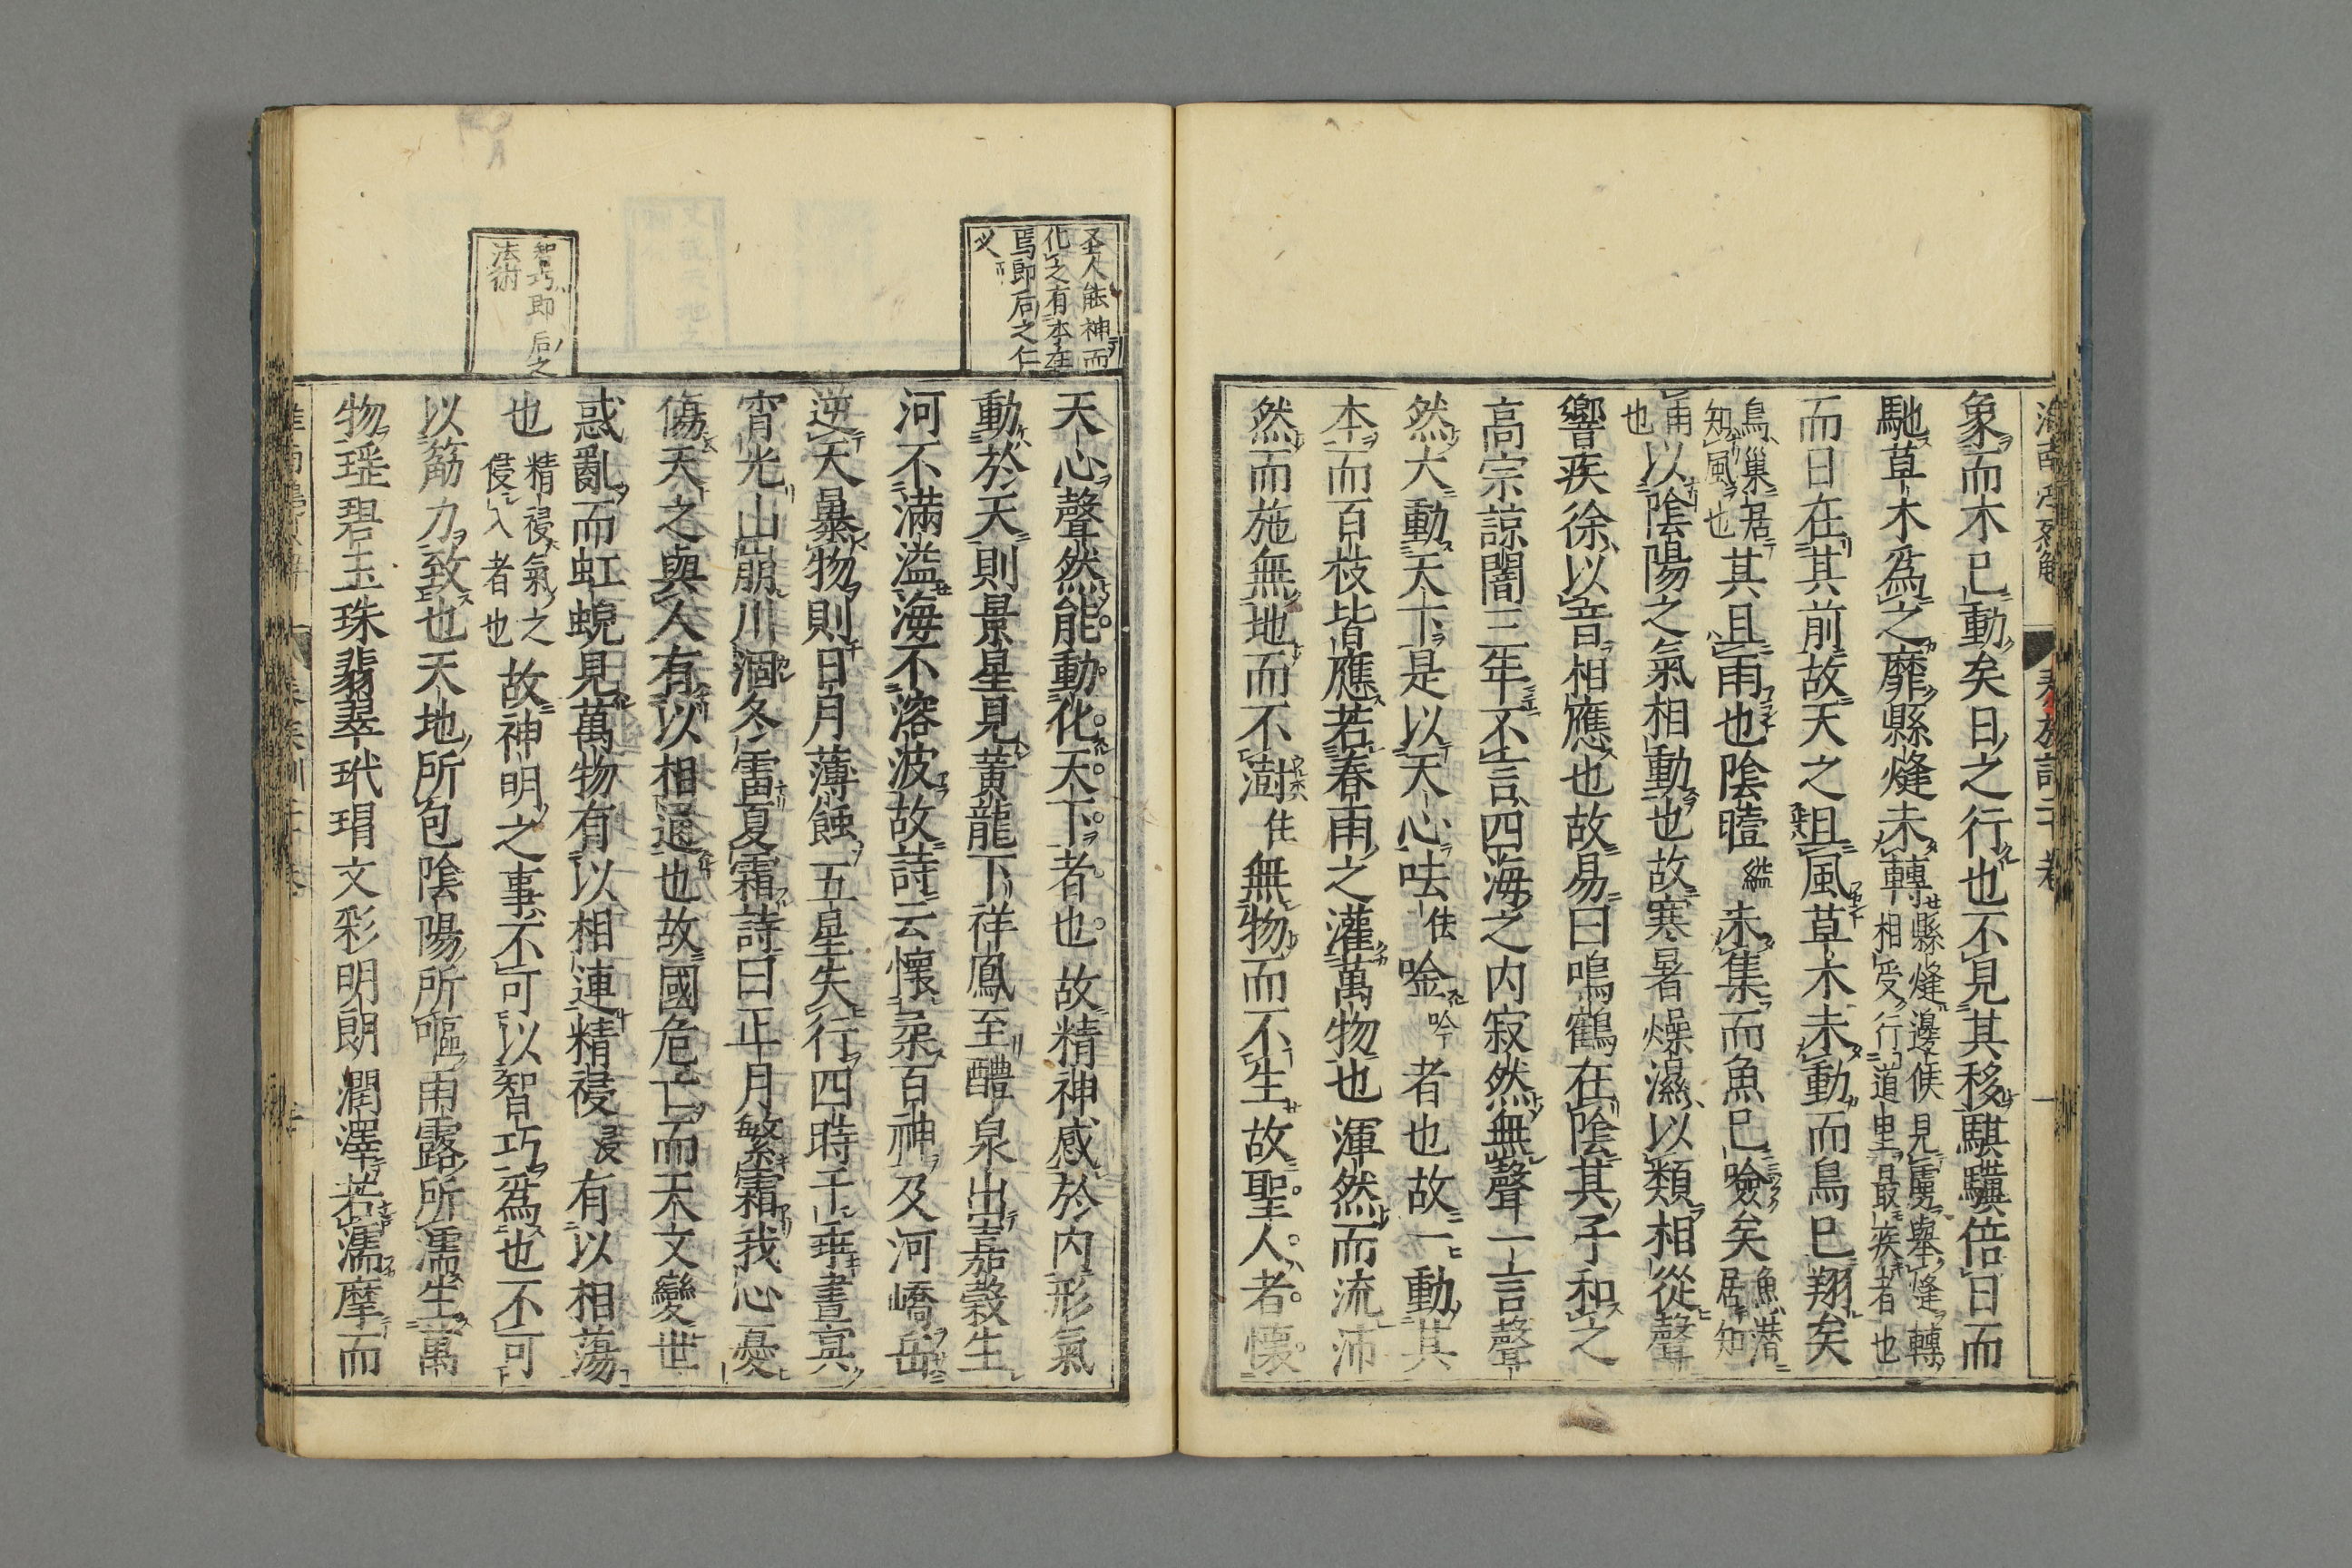 象而木已動矣日之行也不見其移騏驥倍日而
馳草木爲之靡縣烽未轉縣烽邊候見虜舉烽轉相受行道里最疾者也
而日在其前故天之且風草木未動而鳥已翔矣
鳥巢居知風也其且雨也陰曀未集而魚已噞矣魚潛居知
雨也以陰陽之氣相動也故寒暑燥濕以類相從聲
響疾徐以音相應也故易曰鳴鶴在陰其子和之
高宗諒闇三年不言四海之内寂然無聲一言聲
然大動天下是以天心呿唫者也故一動其
本而百枝皆應若春雨之灌萬物也渾然而流沛
然而施無地而不澍無物而不生故聖人者懷
圣人能神而
化之有本在
焉即后之仁
义
天心聲然能動化天下者也故精神感於内形氣
動於天則景星見黃龍下祥鳳至醴泉出嘉穀生
河不滿溢海不溶波故詩云懷柔百神及河嶠岳
逆天暴物則日月薄蝕五星失行四時干乖晝冥
宵光山崩川涸冬雷夏霜詩曰正月繁霜我心憂
傷天之與人有以相通也故國危亡而天文變世
惑亂而虹蜺見萬物有以相連精祲有以相蕩
智巧即后之
法術
也精祲氣之侵入者也故神明之事不可以智巧爲也不可
以筋力致也天地所包陰陽所嘔雨露所濡生萬
物瑶碧玉珠翡翠玳瑁文彩明朗潤澤若濡摩而